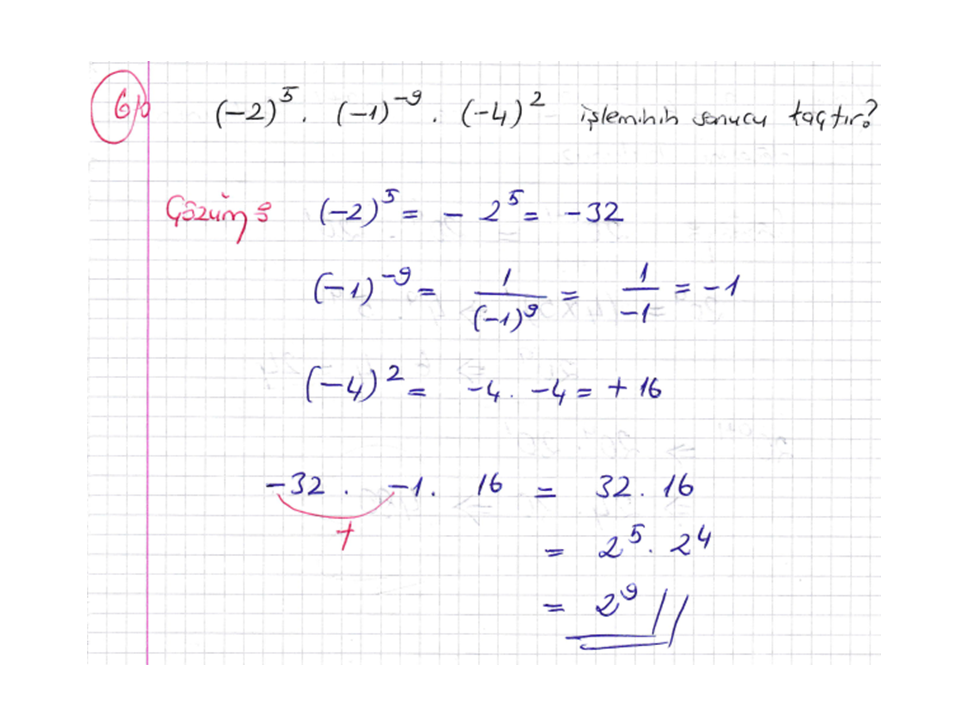 6) (-2)⁵ . (-1)⁻⁹ . (-4)² işleminin sonucu kaçtır?
Çözüm: (-2)⁵ = - 2⁵ = -32
(-1)⁻⁹ = 1/(-1)⁹ = 1/-1 = -1
(-4)² = -4 . -4 = + 16
-32 . -1 . 16 = 32 . 16
+
= 2⁵ . 2⁴
= 2⁹ //